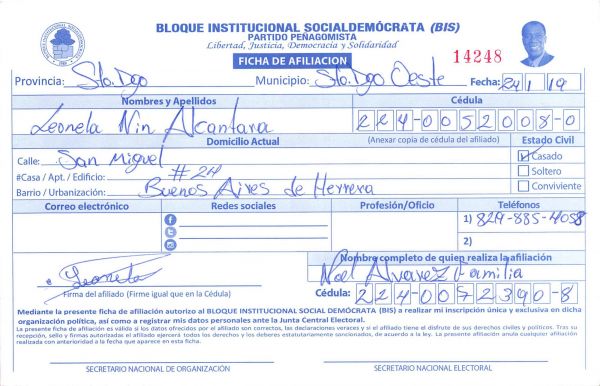 BLOQUE INSTITUCIONAL SOCIALDEMÓCRATA (BIS)
PARTIDO PEÑAGOMISTA
Libertad, Justicia, Democracia y Solidaridad
FICHA DE AFILIACION
14248
Provincia: Sto. Dgo Municipio: Sto. Dgo Oeste Fecha: 24/1/19
Nombres y Apellidos Cédula
Leonela Nin Alcantara 224-0052008-0
Domicilio Actual (Anexar copia de cédula del afiliado) Estado Civil
Calle: San Miguel Casado
#Casa / Apt. / Edificio: #24 Soltero
Barrio / Urbanización: Buenos Aires de Herrera Conviviente
Correo electrónico Redes sociales Profesión/Oficio Teléfonos
1) 829-885-4058
2)
Nombre completo de quien realiza la afiliación
Leonela Noel Alvarez Familia
Firma del afiliado (Firme igual que en la Cédula) Cédula: 224-0072390-8
Mediante la presente ficha de afiliación autorizo al BLOQUE INSTITUCIONAL SOCIAL DEMÓCRATA (BIS) a realizar mi inscripción única y exclusiva en dicha
organización política, así como a registrar mis datos personales ante la Junta Central Electoral.
La presente ficha de afiliación es válida si los datos ofrecidos por el afiliado son correctos, las declaraciones veraces y si el afiliado tiene el disfrute de sus derechos civiles y políticos. Tras su
recepción, sello y firmas autorizadas el afiliado ejercerá todos los derechos y los deberes estatutariamente sancionados, de acuerdo a la ley. La presente afiliación anula cualquier afiliación
realizada con anterioridad a la fecha que aparece en esta ficha.
SECRETARIO NACIONAL DE ORGANIZACIÓN SECRETARIO NACIONAL ELECTORAL